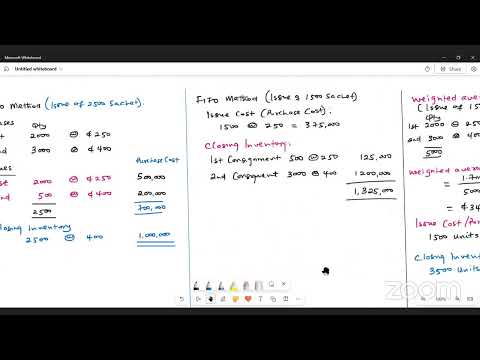 Microsoft Whiteboard
Untitled whiteboard
Method (Issue of 2500 Sachet).
Qty
2000 @ ¢250
3000 @ ¢400
Purchase Cost
2000 @ ¢250 500,000
500 @ ¢400 200,000
2500 700,000
Closing Inventory
2500 @ 400 1,000,000
FIFO Method (Issue of 1500 Sachet)
Issue Cost (Purchase Cost).
1500 @ 250 = 375,000
Closing Inventory:
1st Consignment 500 @ 250 125,000
2nd Consignment 3000 @ 400 1200,000
1,325,000
Weighted
(Issue of
Qty
1st 2000 @
2nd 3000 @
5000
Weighted
500
= ¢34
Issue Cost
1500 units
Closing
3500 units
zoom